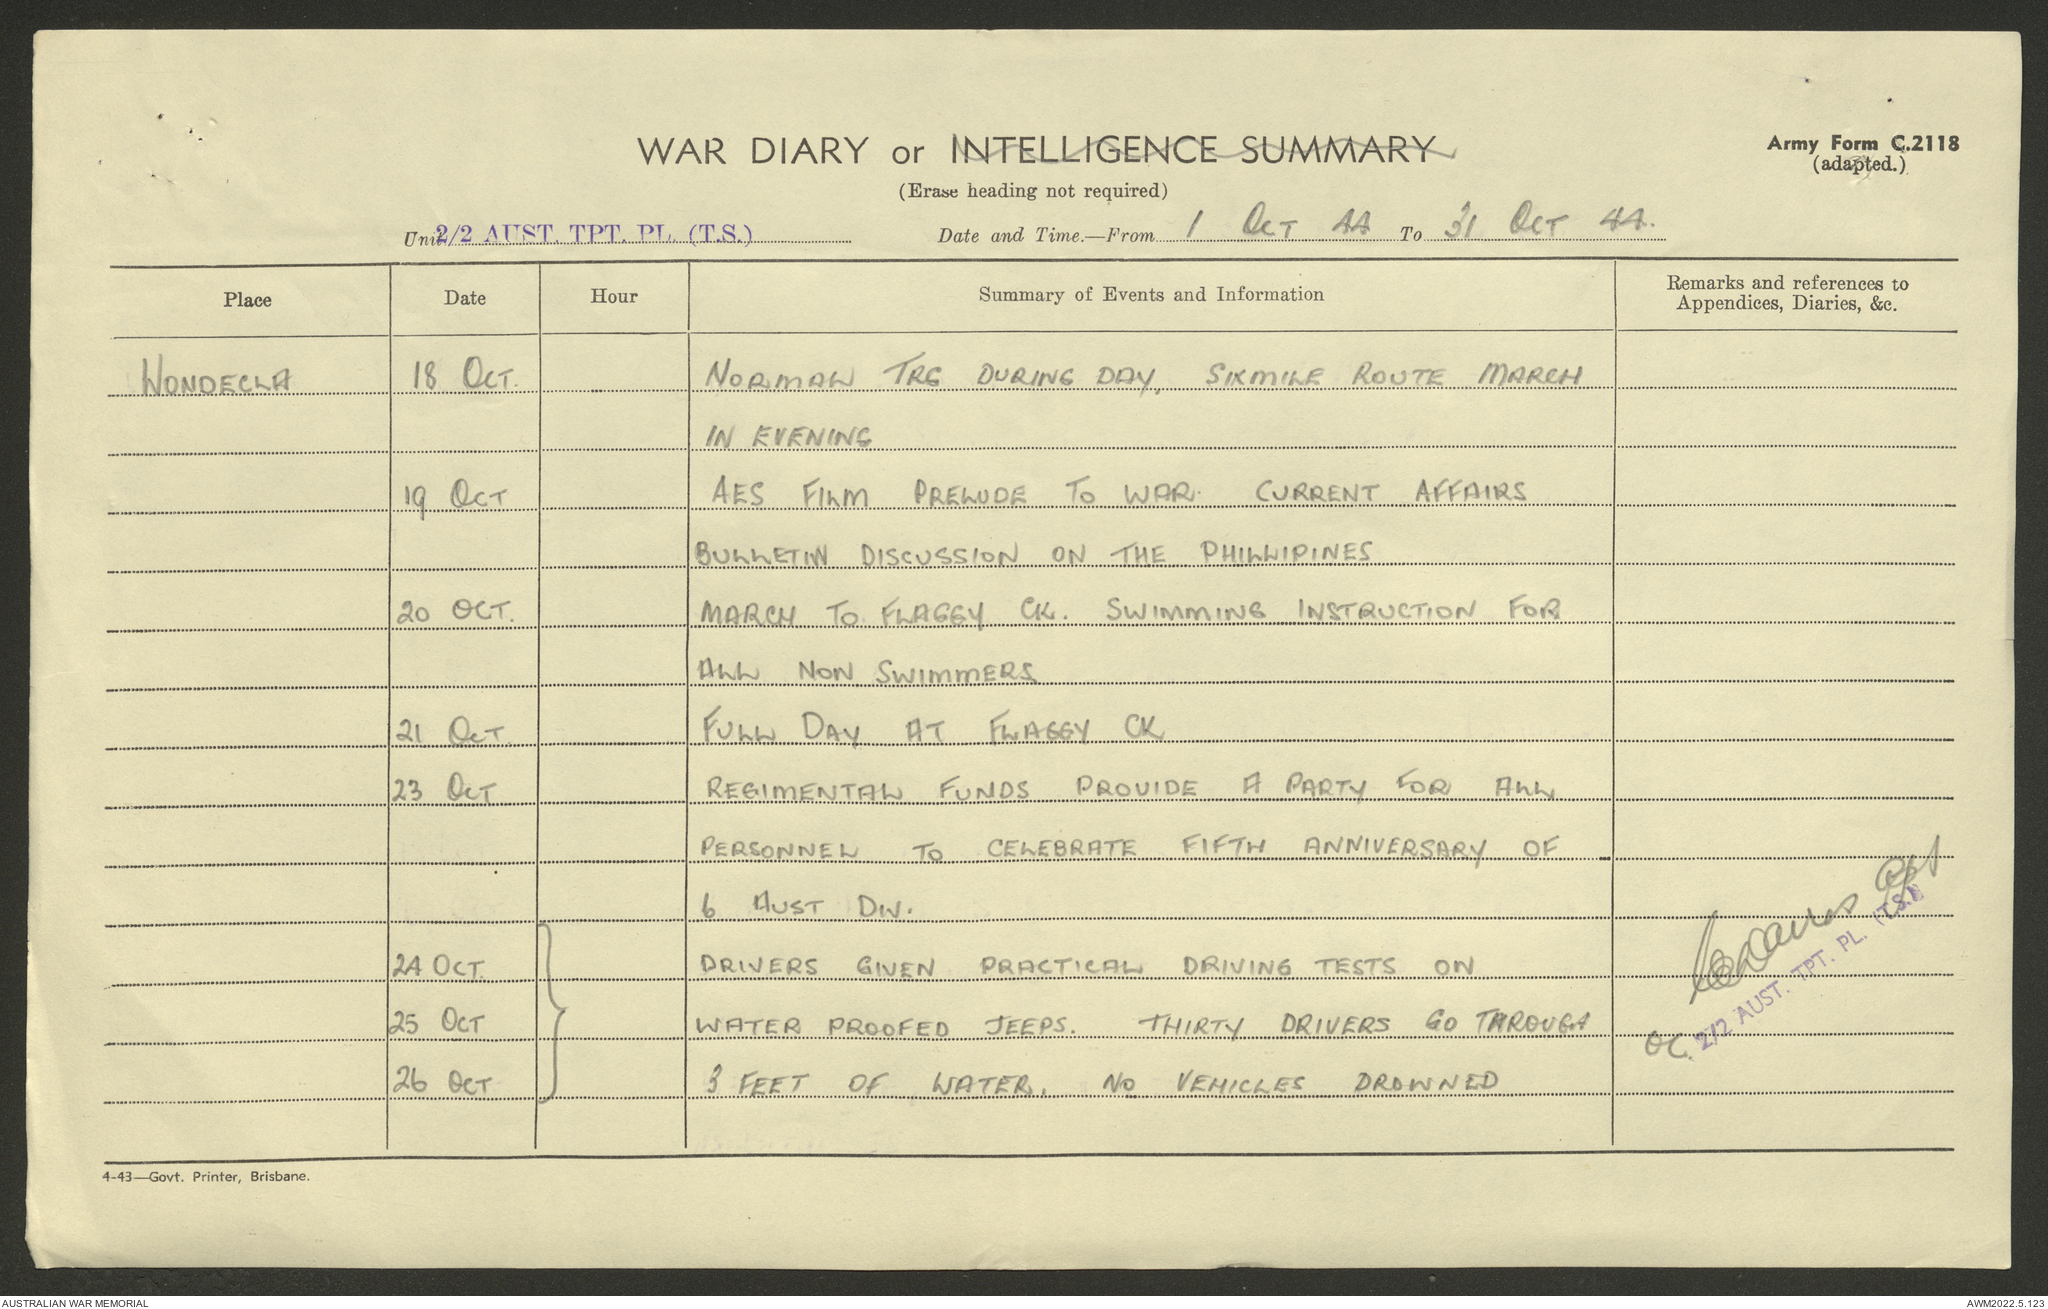 WAR DIARY or INTELLIGENCE SUMMARY
(Erase heading not required)
Army Form C.2118
(adapted.)
Unit 2/2 AUST. TPT. PL. (T.S.)
Date and Time.—From 1 OCT 44 To 31 OCT 44.
Place Date Hour Summary of Events and Information Remarks and references to
Appendices, Diaries, &c.
WONDECLA 18 OCT. NORMAL TRG DURING DAY, SIXMILE ROUTE MARCH
IN EVENING
19 OCT AES FILM PRELUDE TO WAR. CURRENT AFFAIRS
BULLETIN DISCUSSION ON THE PHILLIPINES
20 OCT. MARCH TO FLAGGY CK. SWIMMING INSTRUCTION FOR
ALL NON SWIMMERS
21 OCT. FULL DAY AT FLAGGY CK
23 OCT REGIMENTAL FUNDS PROVIDE A PARTY FOR ALL
PERSONNEL TO CELEBRATE FIFTH ANNIVERSARY OF
6 AUST DIV.
24 OCT. DRIVERS GIVEN PRACTICAL DRIVING TESTS ON
25 OCT WATER PROOFED JEEPS. THIRTY DRIVERS GO THROUGH
26 OCT 3 FEET OF WATER. NO VEHICLES DROWNED
Davies Capt
OC. 2/2 AUST. TPT. PL. (T.S.)
4-43—Govt. Printer, Brisbane.
AUSTRALIAN WAR MEMORIAL
AWM2022.5.123